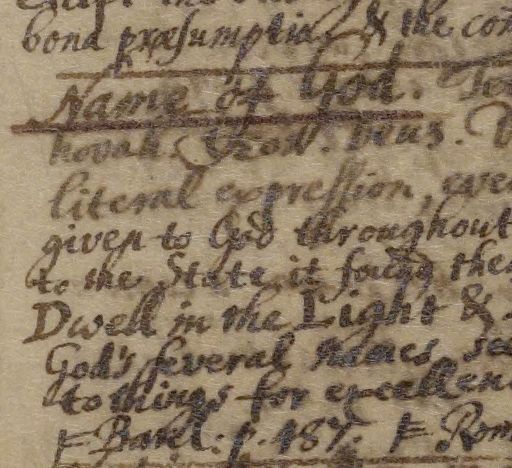 bona præsumptia. & the con
Name of God.
hovah. Deus.
literal expression, eve
given to God throughout
to the State it found the
Dwell in the Light &
God's several names. see
to things for excellen
Barel: p. 487. Rom